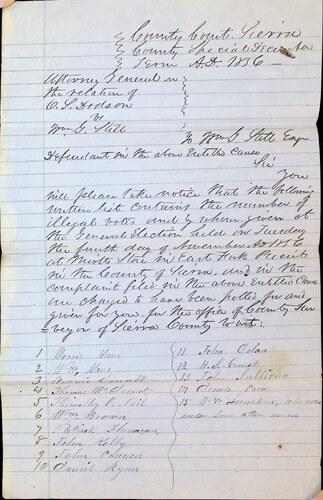 County Court. Sierra
County Special December
Term A.D. 1856 –
Attorney General on
the relation of
C. S. Dodson
vs
Wm G. Still
To Wm G. Still Esqr
Defendant in the above Entitled Cause
Sir
You
will please take notice that the following
written list contains the number of
illegal votes and by whom given at
the General Election held on Tuesday
the fourth day of November AD 1856
at Store in East Fork Precinct
in the County of Sierra, and in the
complaint filed in the above Entitled Cause
are charged to have been polled for and
given for you, for the office of County Sur
veyor of Sierra County to wit:
1 Ham
2 Wm Kane
3
4 Thomas McDermot
5 Timothy
6 Wm Brown
7 Patrick Flanagan
8 John Kelly
9 John
10 Daniel Ryan
11 John Dolan
12 H. S.
13 John Sullivan
14 Dennis
15 Wm who voted
under some other name